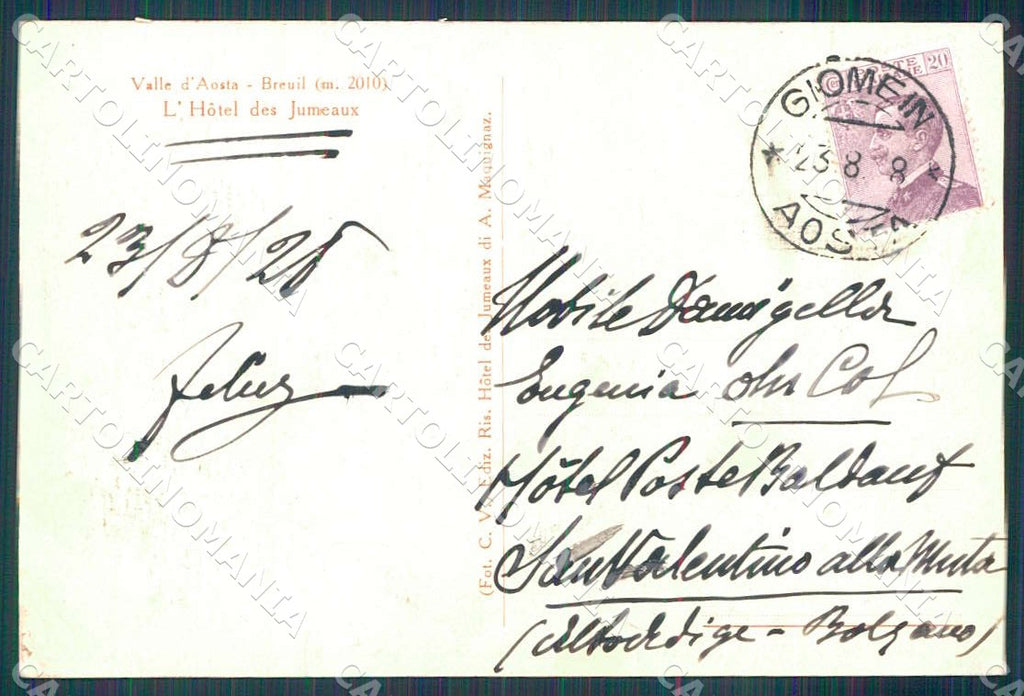 Valle d'Aosta - Breuil (m. 2010)
L' Hôtel des Jumeaux
23/8/28
(Fot. C. V. Ediz. Ris. Hôtel des Jumeaux di A. Maquignaz.
POSTE 20
GIOMEIN
23.8. 8
AOSTA
Nobile Damigella
Eugenia
Hôtel Poste Baldauf
San Valentino alla Muta
(Altoadige - Bolzano)
CARTOLINOMANIA